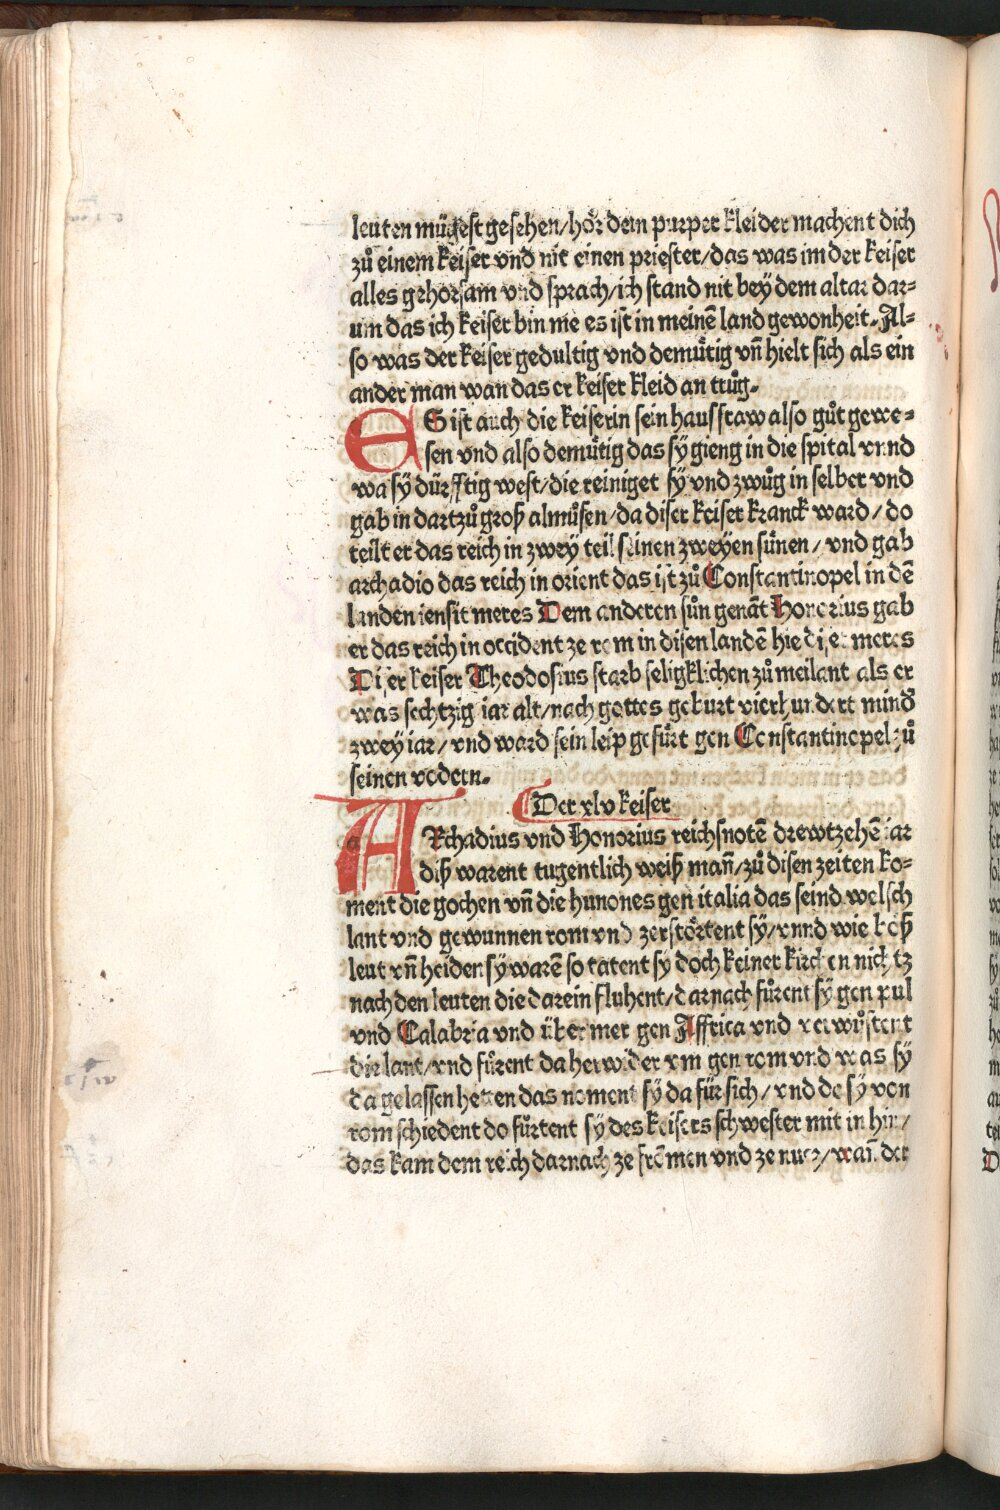 leuten mügest gesehen/hör dein purper kleider machent dich
zů einem keiser vnd nit einen priester/das was im der keiser
alles gehorsam vnd sprach/ich stand nit bey dem altar dar⸗
um das ich keiser bin me es ist in meinē land gewonheit. Al⸗
so was der keiser gedultig vnd demütig vn̄ hielt sich als ein
ander man wan das er keiser kleid an trůg.
ES ist auch die keiserin sein hausfraw also gůt gewe⸗
sen vnd also demütig das sy gieng in die spital vnnd
wa sy dürfftig west/die reiniget sy vnd zwůg in selber vnd
gab in dartzů groß almůsen/da diser keiser kranck ward/do
teilt er das reich in zwey teil seinen zweyen sünen/vnd gab
archadio das reich in orient das ist zů Constantinopel in dē
landen iensit meres Dem anderen sůn genāt Honorius gab
er das reich in occident ze rom in disen landē hie dise meres
Diser keiser Theodosius starb seligklichen zů meilant als er
was sechtzig iar alt/nach gottes geburt vierhundert mind
zwey iar/vnd ward sein leip gefürt gen Constantinopel zů
seinen vodern.
Der xlv keiser
ARchadius vnd Honorius reichsnotē drewtzehē iar
diß warent tugentlich weiß man̄/zů disen zeiten ko⸗
ment die gochen vn̄ die hunones gen italia das seind welsch
lant vnd gewunnen rom vnd zerstörtent sy/vnnd wie böß
leut vn̄ heiden sy warē so tatent sy doch keiner kirchen nichtz
nach den leuten die darein fluhent/darnach fůrent sy gen pul
vnd Calabria vnd über mer gen Affrica vnd verwůstent
die lant/vnd fůrent da herwider vm gen rom vnd was sy
da gelassen hetten das noment sy da für sich/vnd do sy von
rom schiedent do fůrtent sy des keisers schwester mit in hin/
das kam dem reich darnach ze frōmen vnd ze nucz/wan̄ der